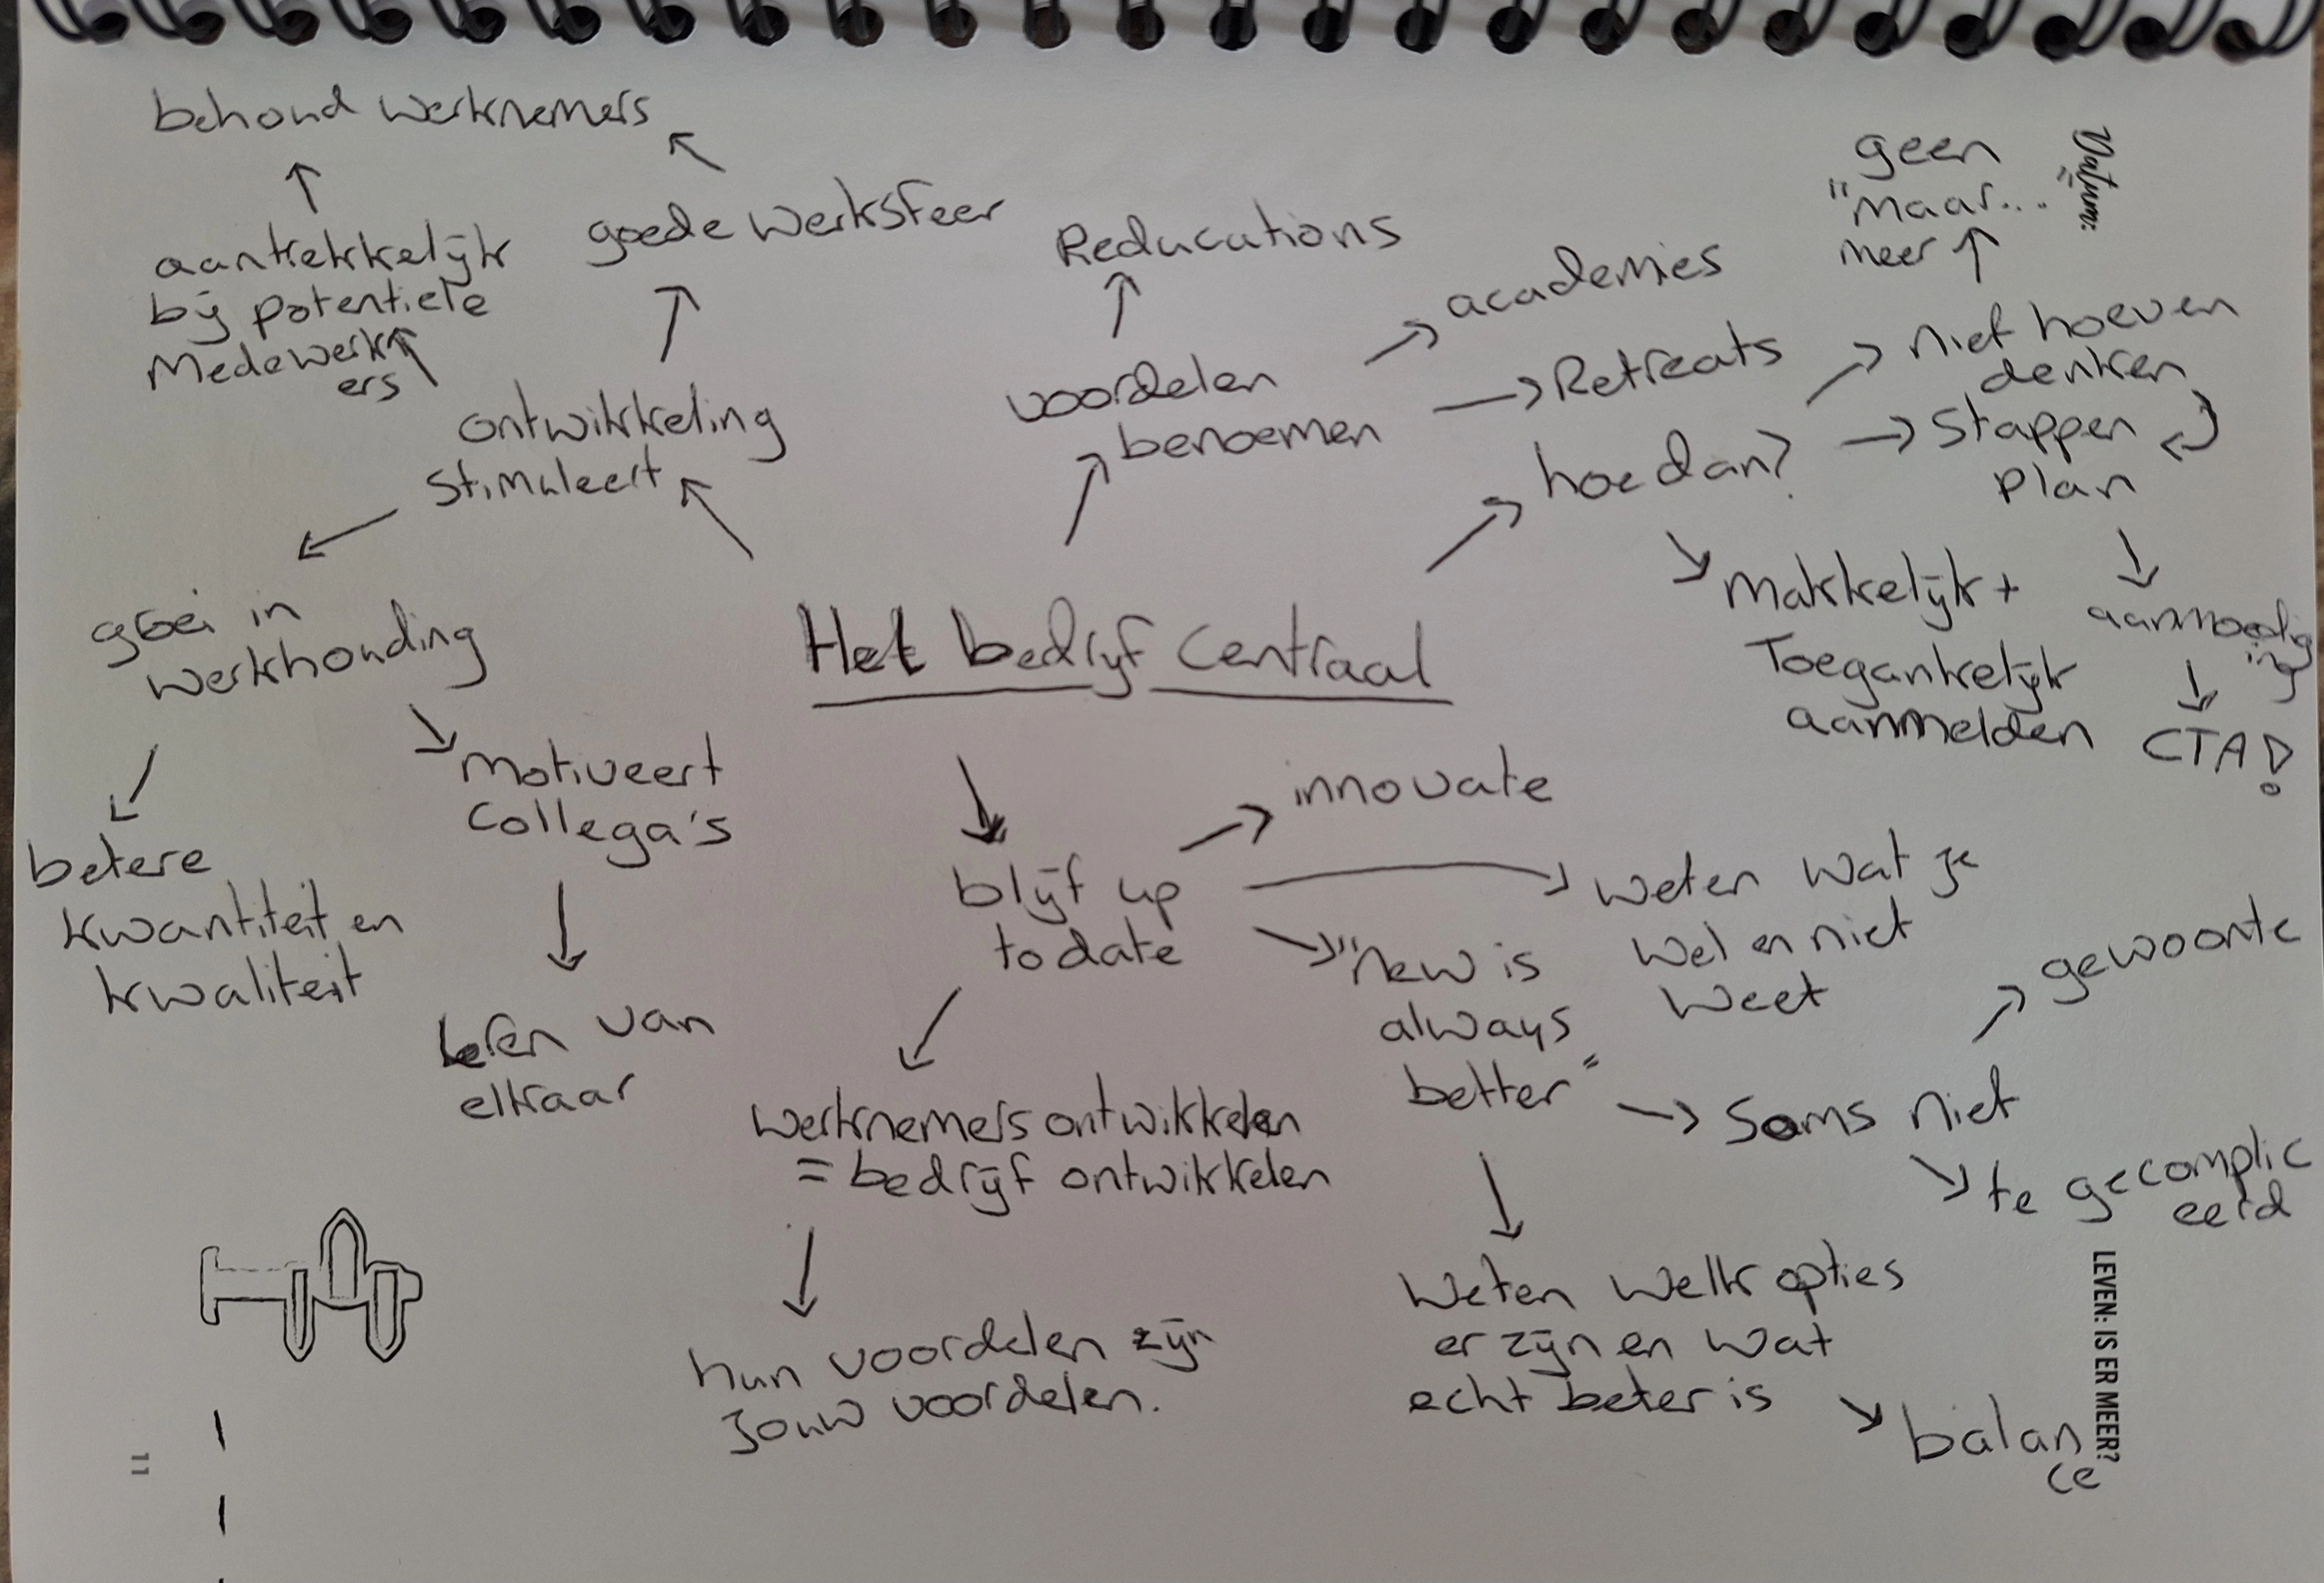 behoud werknemers
aantrekkelijk
bij potentiele
Medewerk
ers
goede werksfeer
Reducations
academies
geen
"maar...
meer
Datum:
ontwikkeling
stimuleert
voordelen
benoemen
Retreats
hoe dan?
niet hoeven
denken
Stappen
plan
groei in
werkhouding
Het bedrijf centraal
Makkelijk +
Toegankelijk
aanmelden
aanmoedig
ing
CTA!
betere
kwantiteit en
kwaliteit
Motiveert
Collega's
leren van
elkaar
blijf up
to date
innovate
weten wat je
wel en niet
weet
"New is
always
better"
soms niet
gewoonte
te gecomplic
eerd
werknemers ontwikkelen
= bedrijf ontwikkelen
hun voordelen zijn
jouw voordelen.
Weten welk opties
er zijn en wat
echt beter is
balan
ce
LEVEN: IS ER MEER?
11